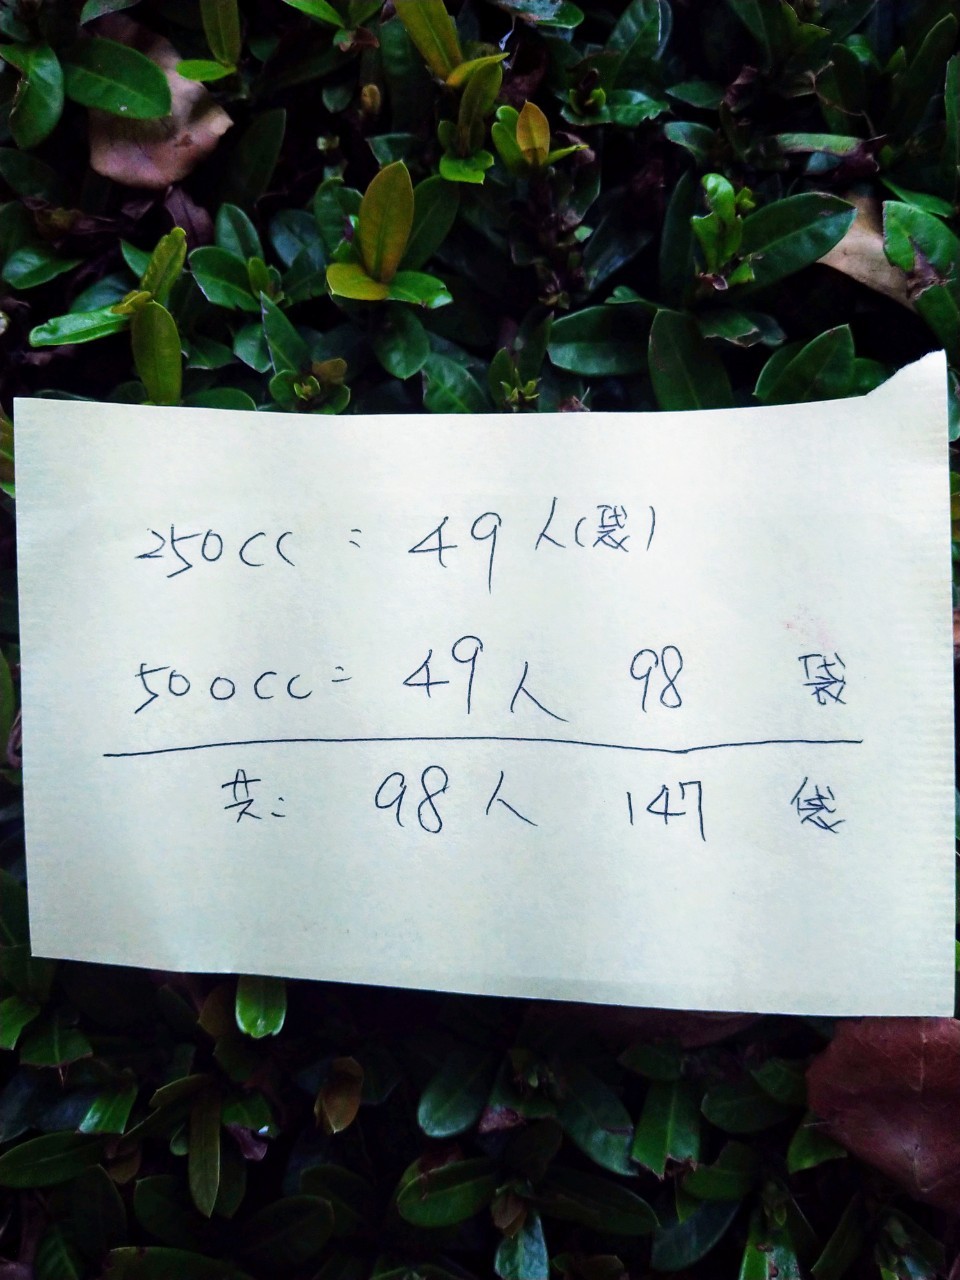 250cc : 49人(袋)
500cc : 49人 98 袋
共: 98人 147 袋